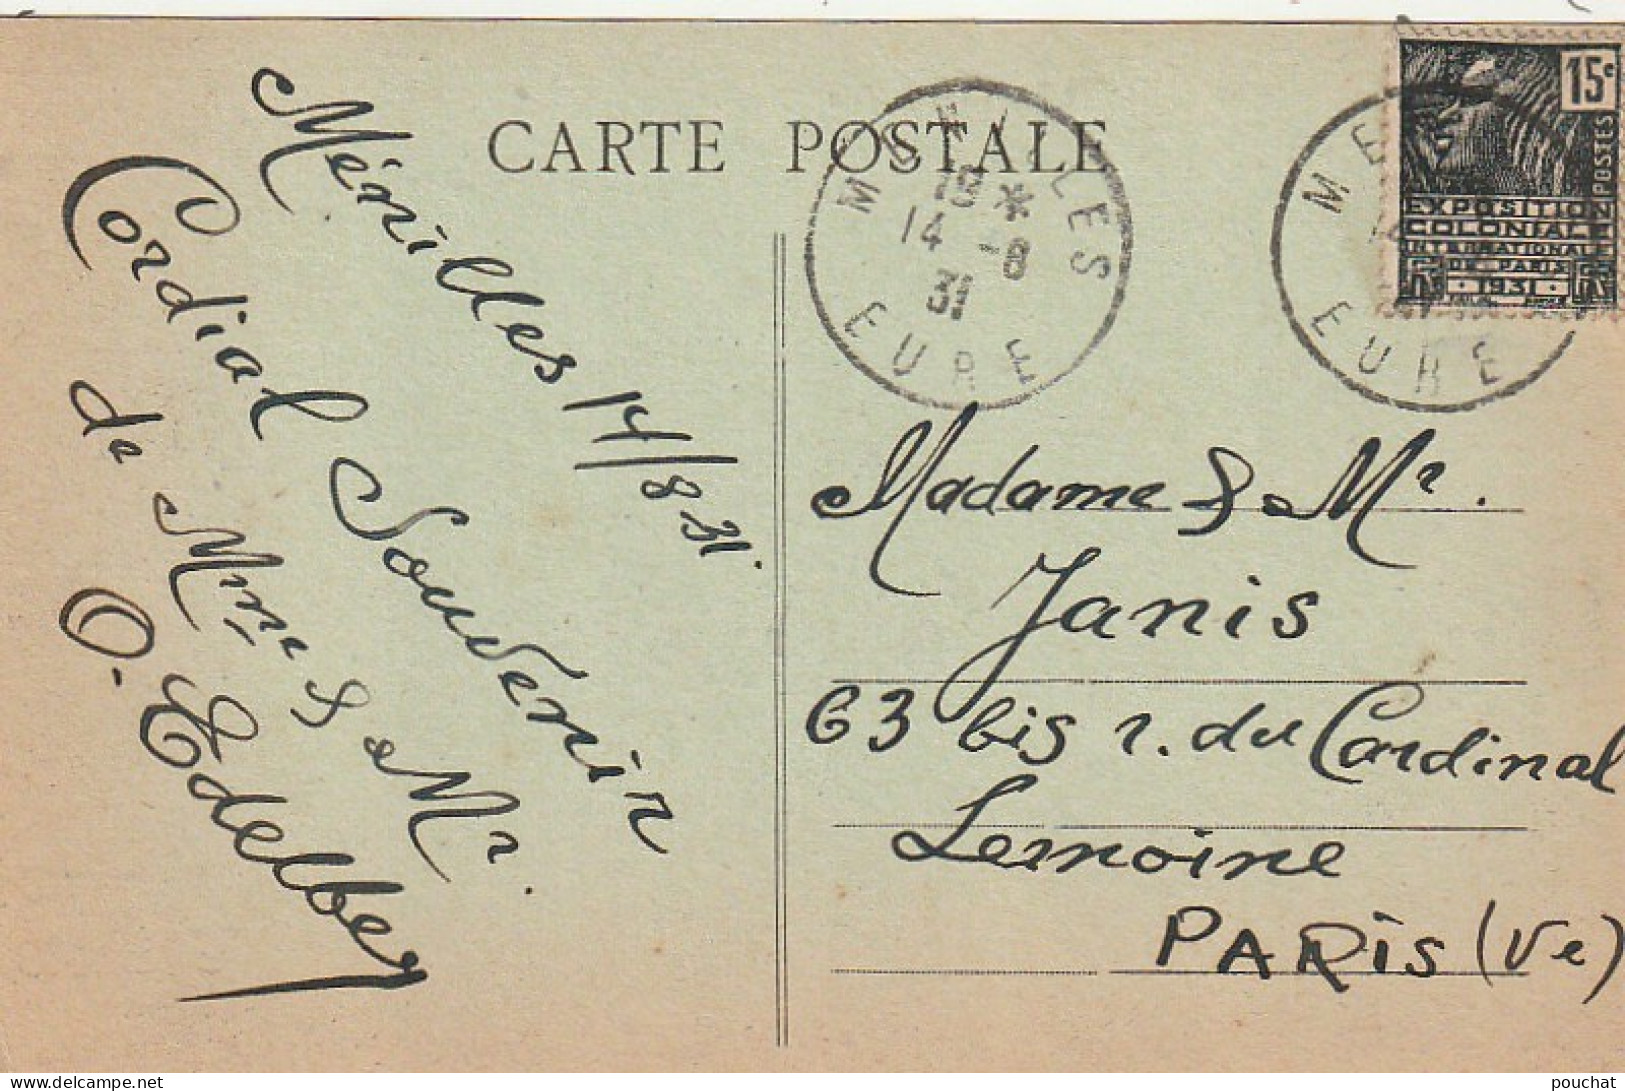 CARTE POSTALE
Ménilles 14/8 31.
Cordial Souvenir
de Mme & Mr.
O. Edelber
MENILLES
14 - 8
31
EURE
ME
EURE
15c
POSTES
EXPOSITION
COLONIALE
INTERNATIONALE
DE PARIS
1931
Madame & Mr.
Janis
63 bis r. du Cardinal
Lemoine
PARIS (Ve)
delcampe.net
pouchat